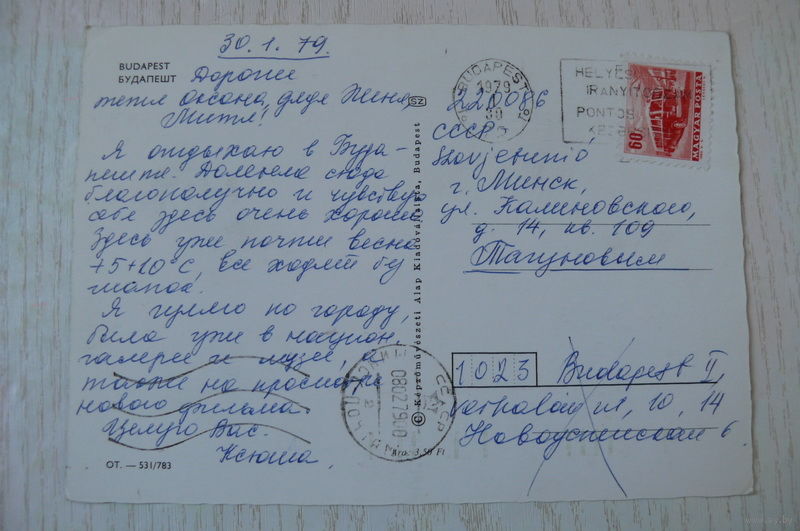 30.1.79.
BUDAPEST
БУДАПЕШТ
Дорогие
тётя Оксана, дядя Женя,
Митя!
Я отдыхаю в Буда-
пеште. Долетела сюда
благополучно и чувствую
себя здесь очень хорошо.
Здесь уже почти весна
+5+10°C, все ходят без
шапок.
Я гуляю по городу,
была уже в национ.
галерее и музее, а
также на просмотре
нового фильма.
Целую Вас.
Ксюша.
ОТ. — 531/783
SZ
© Képzőművészeti Alap Kiadóvállalata, Budapest
Ára: 3,50 Ft
BUDAPEST
1979
HELYES
IRÁNYÍTÓSZÁM
PONTOS
60f
MAGYAR POSTA
220086
СССР
Szovjetunió
г. Минск,
ул. Калиновского,
д. 14, кв. 109
Тагуновым
1023 Budapest II,
út, 10, 14
6
СССР
080279